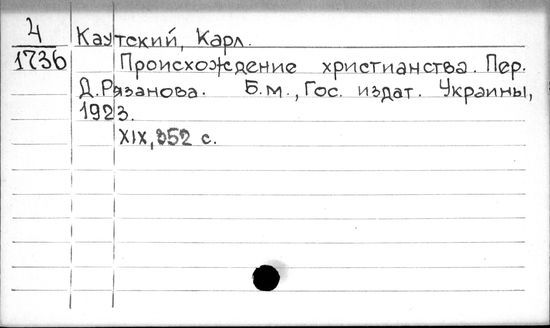 4 Каутский, Карл.
1736 Происхождение христианства. Пер.
Д. Рязанова. Б.м., Гос. издат. Украины,
1923.
XIX, 352 с.